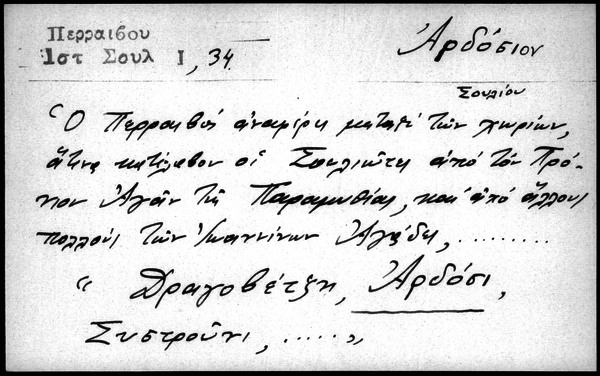 Περραιβου
1στ Σουλ Ι, 34
Ἀρδόσιον
Σουλίου
Ὁ Περραιβός ἀναφέρει μεταξύ τῶν χωρίων,
ἅτινα κατέλαβον οἱ Σουλιῶται ἀπό τόν Πρό-
νιον Ἀγᾶν τῆς Παραμυθίας, καί ἀπό ἄλλους
πολλούς τῶν Ἰωαννίνων Ἀγάδες, ........
" Δραγοβέτζη, Ἀρδόσι,
Συστροῦνι, ..... "